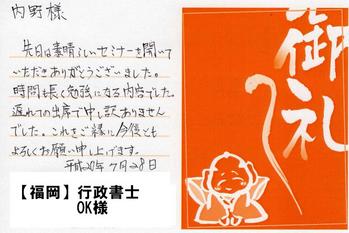 内野様
先日は素晴らしいセミナーを開いて
いただきありがとうございました。
時間も長く勉強になる内容でした。
遅れての出席で申し訳ありません
でした。これをご縁に今後とも
よろしくお願い申し上げます。
平成20年7月28日
【福岡】行政書士
OK様
御礼